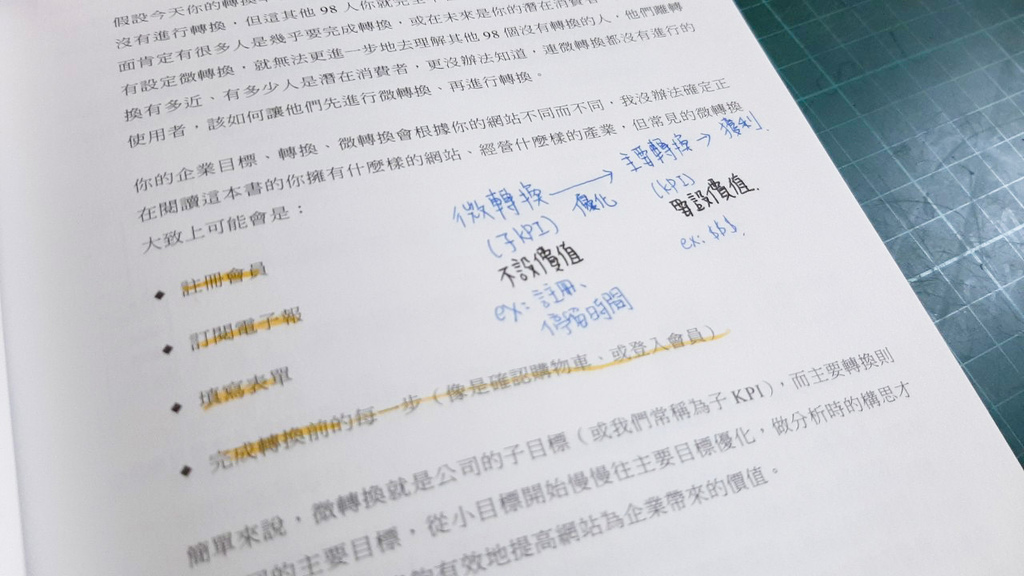 假設今天你的轉換
沒有進行轉換，但這其他 98 人你就完全
面肯定有很多人是幾乎要完成轉換，或在未來是你的潛在消費者
有設定微轉換，就無法更進一步地去理解其他 98 個沒有轉換的人，他們離轉
換有多近、有多少人是潛在消費者，更沒辦法知道，連微轉換都沒有進行的
使用者，該如何讓他們先進行微轉換、再進行轉換。
你的企業目標、轉換、微轉換會根據你的網站不同而不同，我沒辦法確定正
在閱讀這本書的你擁有什麼樣的網站、經營什麼樣的產業，但常見的微轉換
大致上可能會是：
微轉換 → 主要轉換 → 獲利
優化
(子KPI) (KPI)
不設價值 要設價值
ex: 註冊、 ex: $$$
停留時間
◆ 註冊會員
◆ 訂閱電子報
◆ 填寫表單
◆ 完成轉換前的每一步（像是確認購物車、或登入會員）
簡單來說，微轉換就是公司的子目標（或我們常稱為子 KPI），而主要轉換則
的主要目標，從小目標開始慢慢往主要目標優化，做分析時的構思才
有效地提高網站為企業帶來的價值。